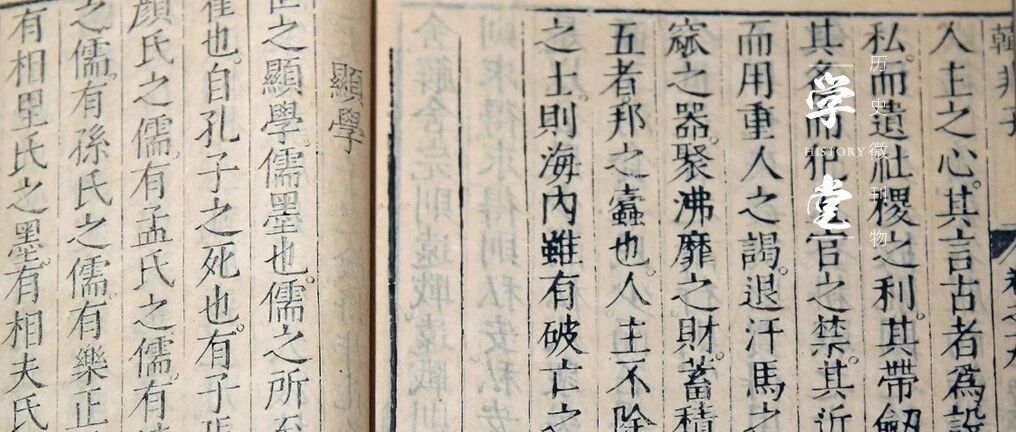 韓非子
人主之心。其言古者爲設
私。而遺社稷之利。其帶劔
其名而犯官之禁。其近
而用重人之謁。退汗馬之
窳之器。聚沸靡之財。蓄積
五者。邦之蠹也。人主不除
之士。則海內雖有破亡之
顯學
世之顯學。儒墨也。儒之所至
也。自孔子之死也。有子張
顏氏之儒。有孟氏之儒。有
之儒。有孫氏之儒。有樂正
有相里氏之墨。有相夫氏
学堂
HISTORY
历史微刊物